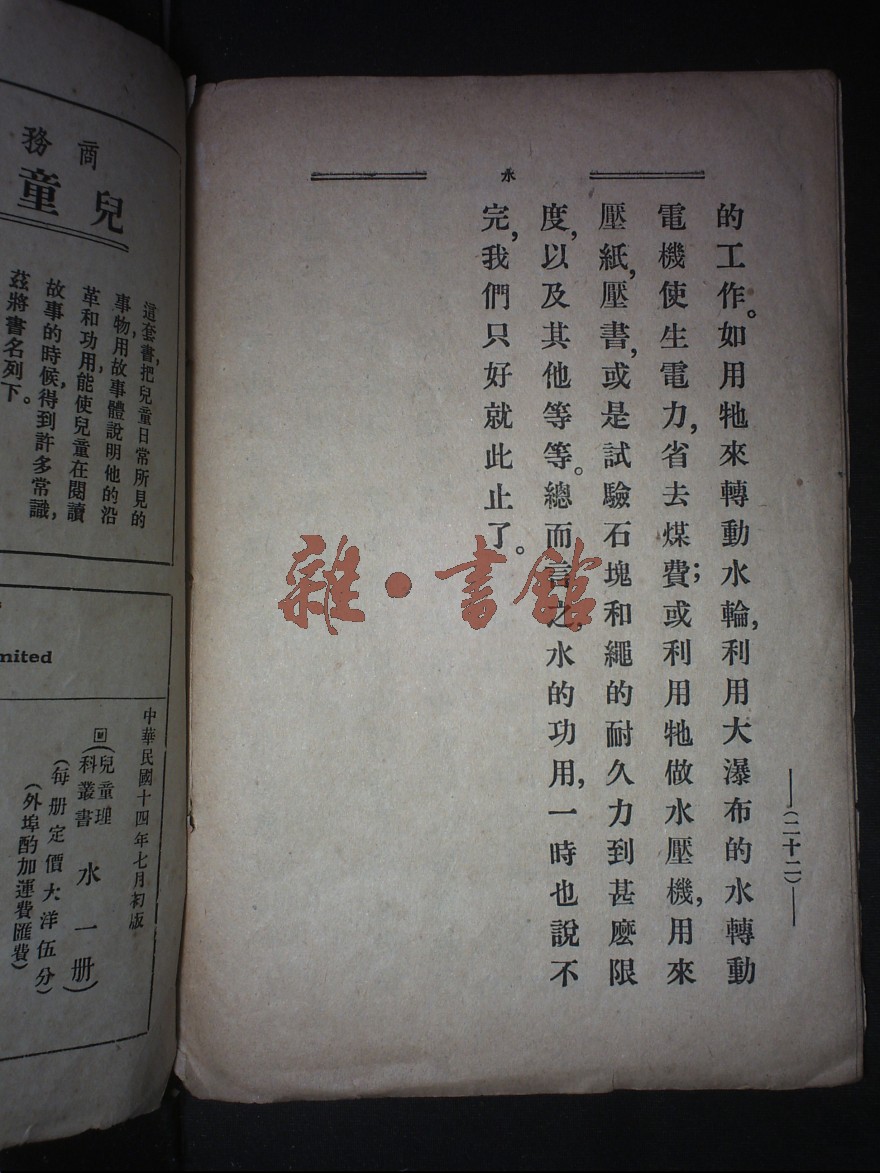 水
的工作。如用牠來轉動水輪,利用大瀑布的水轉動
電機使生電力,省去煤費;或利用牠做水壓機,用來
壓紙,壓書,或是試驗石塊和繩的耐久力到甚麽限
度,以及其他等等。總而言之,水的功用,一時也說不
完,我們只好就此止了。
(二十二)
雜·書館
商務
兒童
這套書,把兒童日常所見的
事物,用故事體說明他的沿
革和功用,能使兒童在閱讀
故事的時候,得到許多常識,
茲將書名列下。
mited
中華民國十四年七月初版
(兒童理科叢書 水 一册)
(每册定價大洋伍分)
(外埠酌加運費匯費)